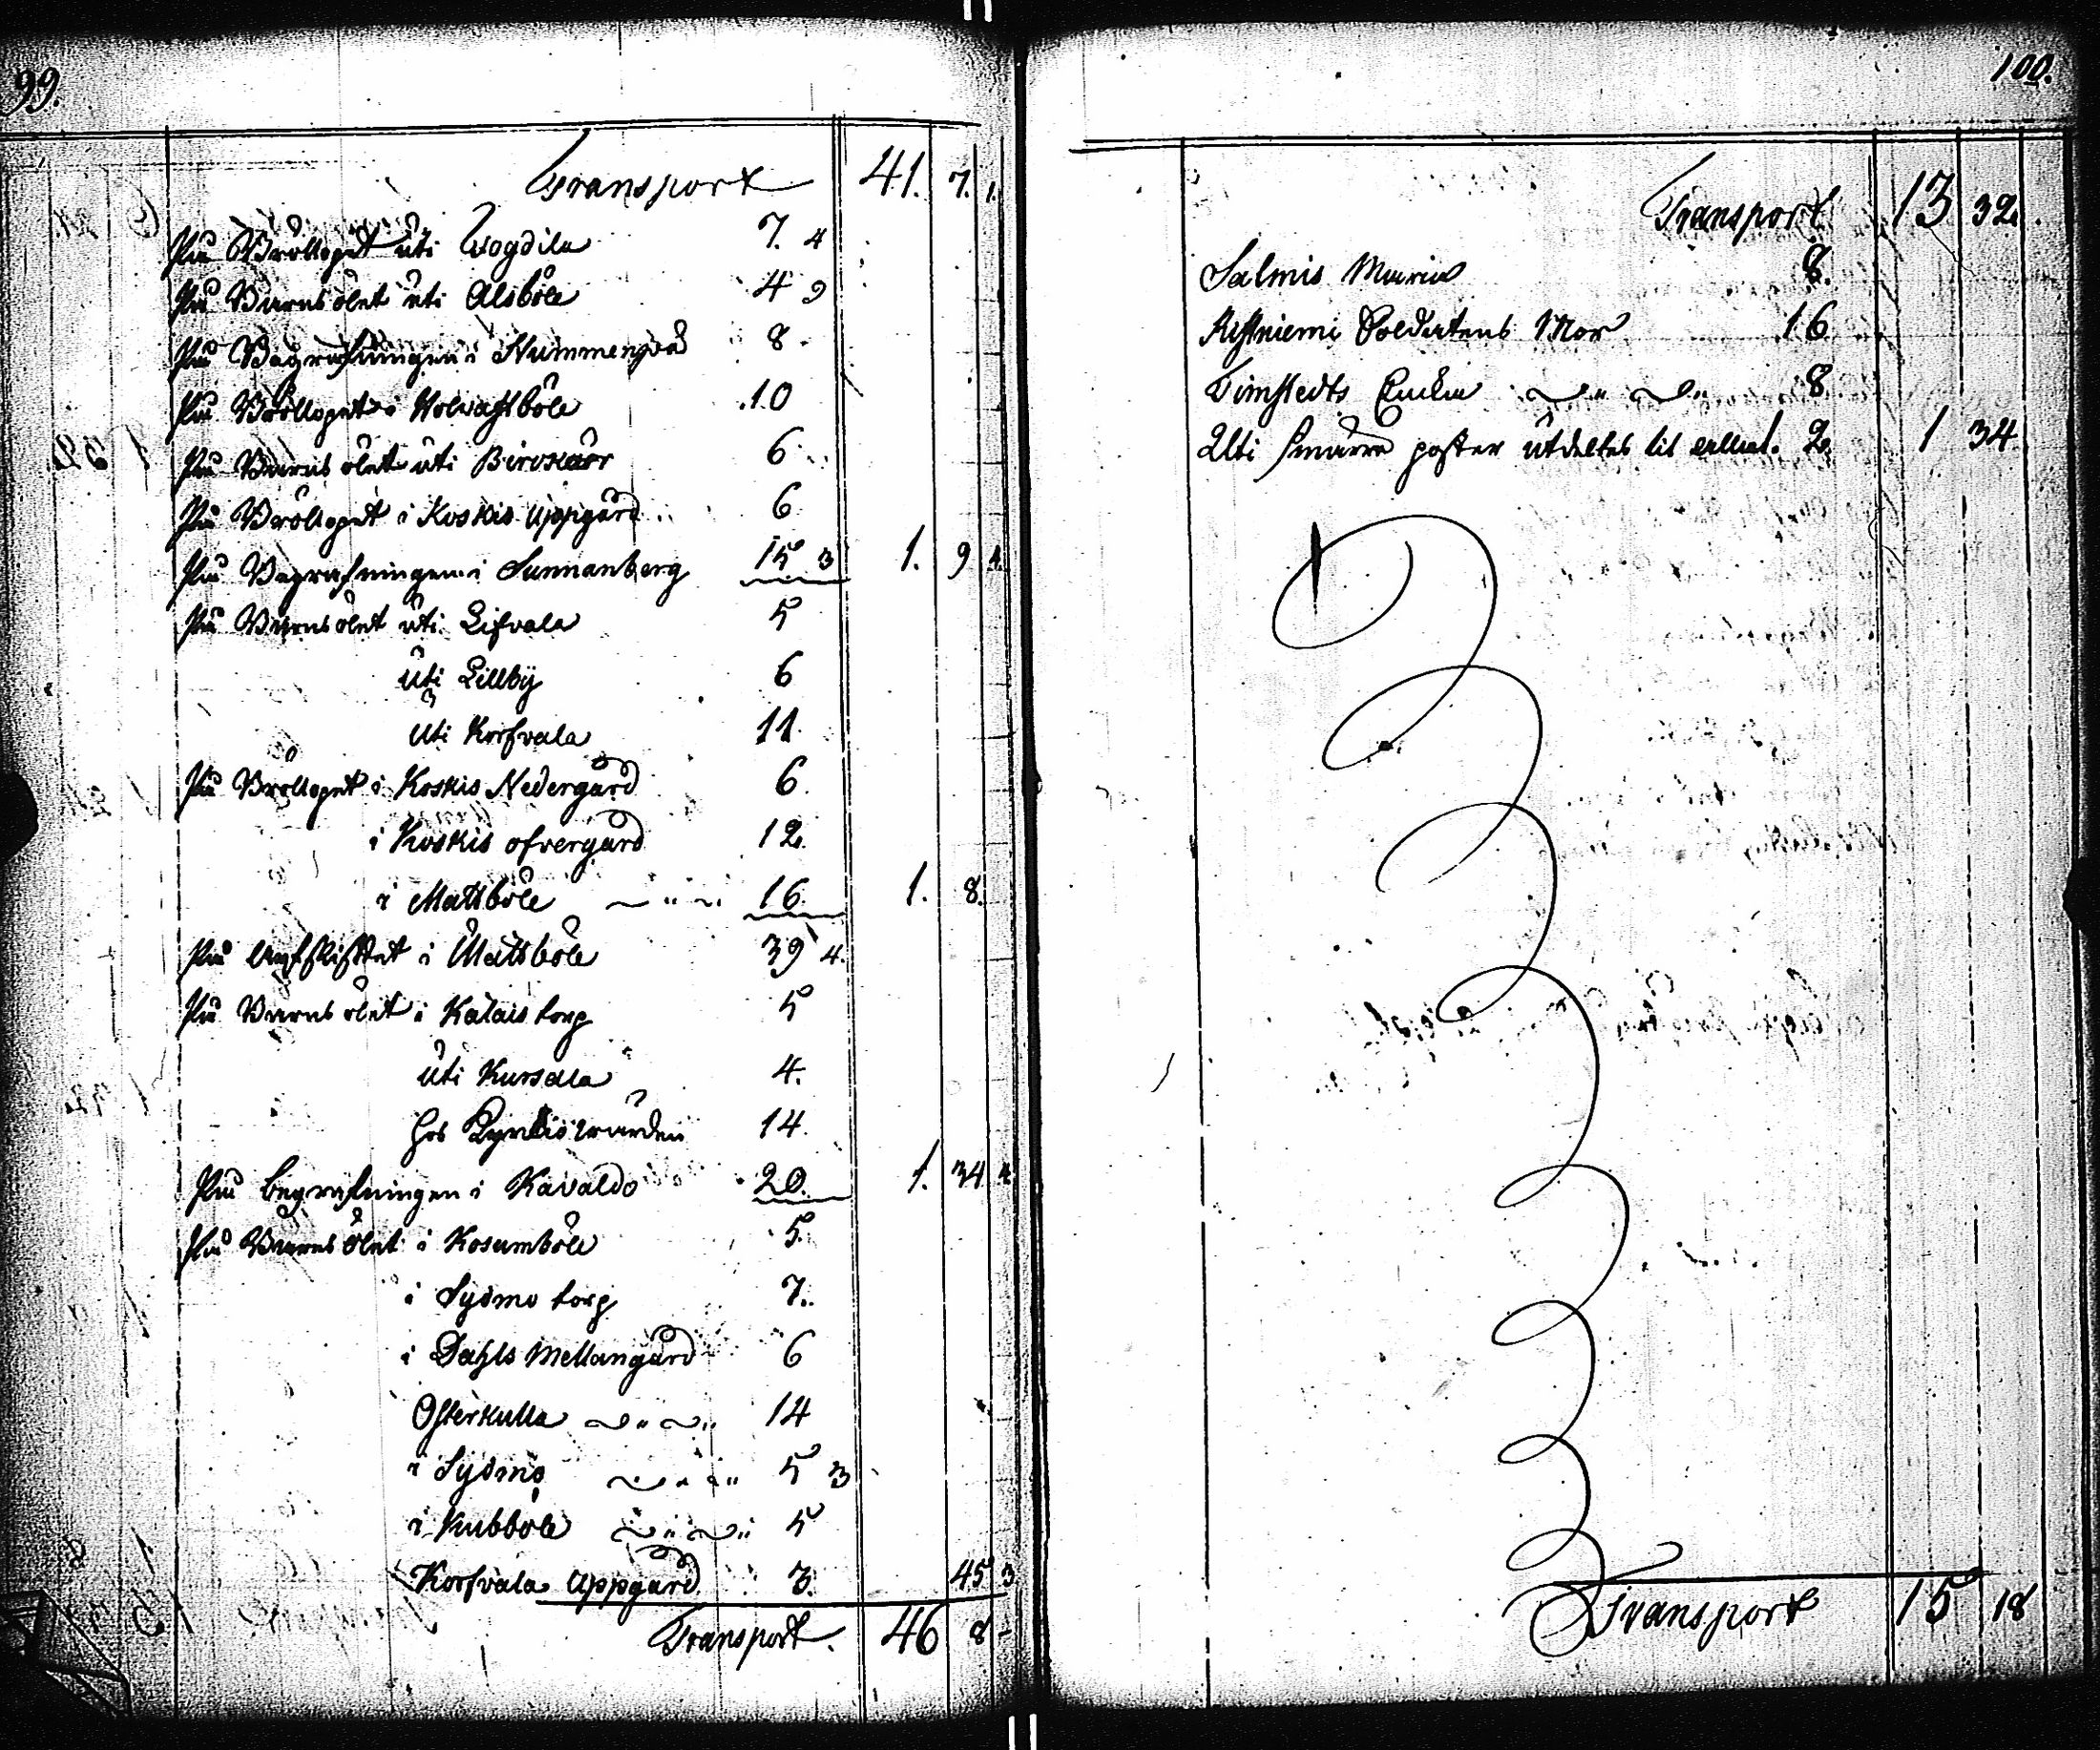 99.
Transport 41. 7. 1.
På Bröllopet uti Trogdila 7. 4
På Barnsölet uti Alsböle 4 9
På Begrafningen i Nummenpää 8
På Bröllopet i Holvastböle 10
På Barnsölet uti Biroskärr 6
På Bröllopet i Koskis Uppgård 6
På Begrafningen i Sunnanberg 15 3 1. 9 4.
På Barnsölet uti Lifvala 5
uti Lillby 6
uti Korfvala 11
På Bröllopet i Koskis Nedergård 6
i Koskis ofvergård 12.
i Mattböle 16 1. 8.
På Arfskiftet i Mattsböle 39 4.
På Barnsölet i Kalais torp 5
uti Kursala 4.
hos värden 14.
På begrafningen i Kavaldo 20. 1. 34 4
På Barnsölet i Kosamböle 5.
i Sydmo torp 7.
i Dahls Mellangård 6
Österkulla 14
i Sydmo 5 3
i Kubböle 5
Korfvala Uppgård 3. 45 3
Transport. 46 8 -
100.
Transport 13 32.
Salmis Maria 8.
Ristniemi Soldatens Mor 16
Timstedts Enka 8
Uti smärre poster utdeltes til allm. 2. 1 34
Transport 15 18